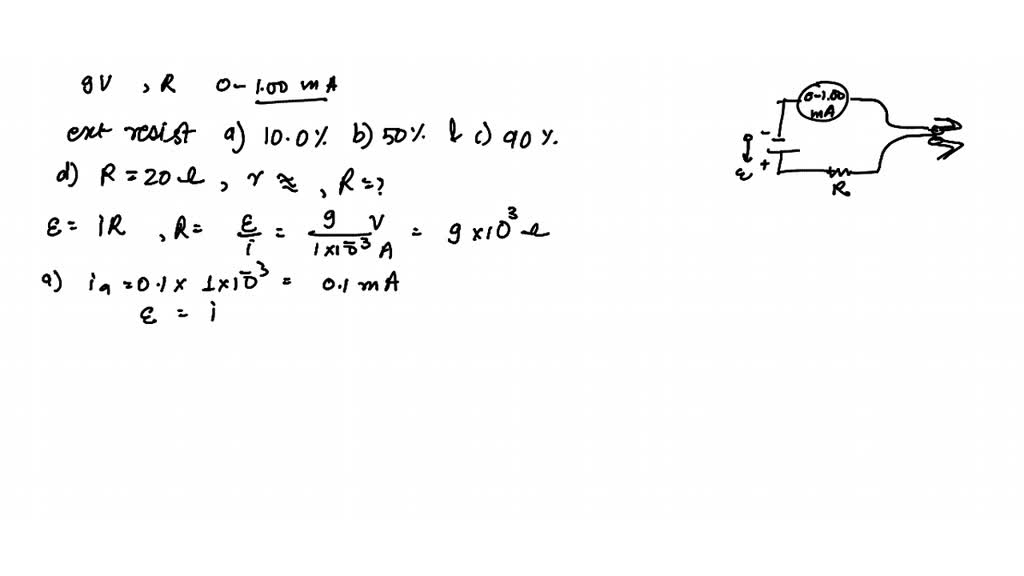 9V , R 0 - 1.00 mA
ext resist a) 10.0% b) 50% & c) 90 %.
d) R = 20 Ω , r ≈ , R = ?
ε = iR , R = ε/i = 9 V / 1×10⁻³ A = 9 × 10³ Ω
a) iₐ = 0.1 × 1×10⁻³ = 0.1 mA
ε = i
0-1.00
mA
-
ε
+
R